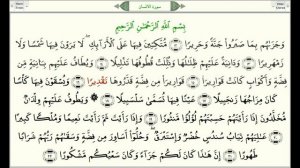 سورة الانسان
بِسْمِ اللَّهِ الرَّحْمَٰنِ الرَّحِيمِ
وَجَزَىٰهُم بِمَا صَبَرُوا۟ جَنَّةً وَحَرِيرًا ﴿١٢﴾ مُّتَّكِـِٔينَ فِيهَا عَلَى ٱلْأَرَآئِكِ ۖ لَا يَرَوْنَ فِيهَا شَمْسًا وَلَا
زَمْهَرِيرًا ﴿١٣﴾ وَدَانِيَةً عَلَيْهِمْ ظِلَٰلُهَا وَذُلِّلَتْ قُطُوفُهَا تَذْلِيلًا ﴿١٤﴾ وَيُطَافُ عَلَيْهِم بِـَٔانِيَةٍ مِّن
فِضَّةٍ وَأَكْوَابٍ كَانَتْ قَوَارِيرَا۠ ﴿١٥﴾ قَوَارِيرَا۟ مِن فِضَّةٍ قَدَّرُوهَا تَقْدِيرًا ﴿١٦﴾ وَيُسْقَوْنَ فِيهَا كَأْسًا
كَانَ مِزَاجُهَا زَنجَبِيلًا ﴿١٧﴾ عَيْنًا فِيهَا تُسَمَّىٰ سَلْسَبِيلًا ﴿١٨﴾ وَيَطُوفُ عَلَيْهِمْ وِلْدَٰنٌ
مُّخَلَّدُونَ إِذَا رَأَيْتَهُمْ حَسِبْتَهُمْ لُؤْلُؤًا مَّنثُورًا ﴿١٩﴾ وَإِذَا رَأَيْتَ ثَمَّ رَأَيْتَ نَعِيمًا وَمُلْكًا كَبِيرًا ﴿٢٠﴾
عَٰلِيَهُمْ ثِيَابُ سُندُسٍ خُضْرٌ وَإِسْتَبْرَقٌ ۖ وَحُلُّوٓا۟ أَسَاوِرَ مِن فِضَّةٍ وَسَقَىٰهُمْ رَبُّهُمْ شَرَابًا
طَهُورًا ﴿٢١﴾ إِنَّ هَٰذَا كَانَ لَكُمْ جَزَآءً وَكَانَ سَعْيُكُم مَّشْكُورًا ﴿٢٢﴾